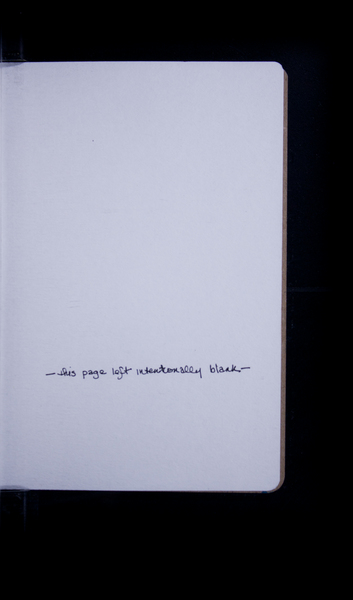 — this page left intentionally blank —